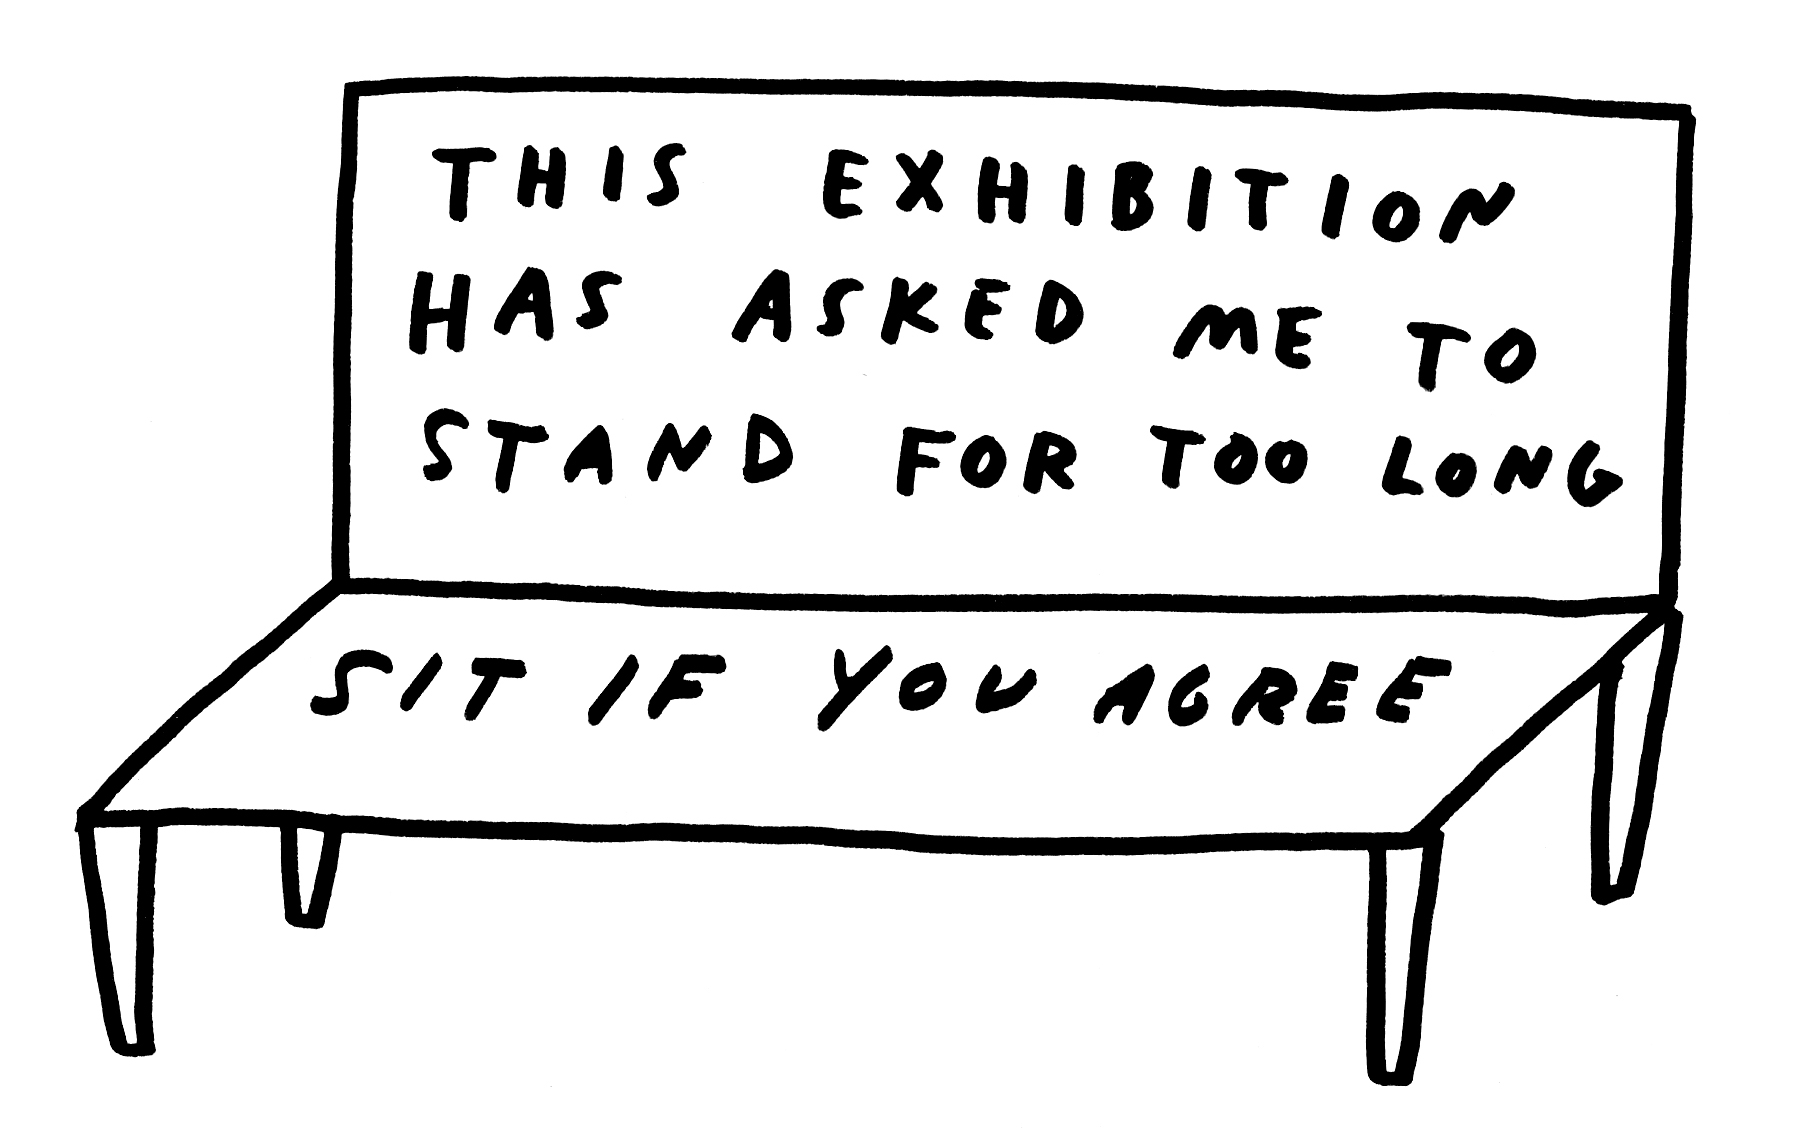 THIS EXHIBITION
HAS ASKED ME TO
STAND FOR TOO LONG
SIT IF YOU AGREE